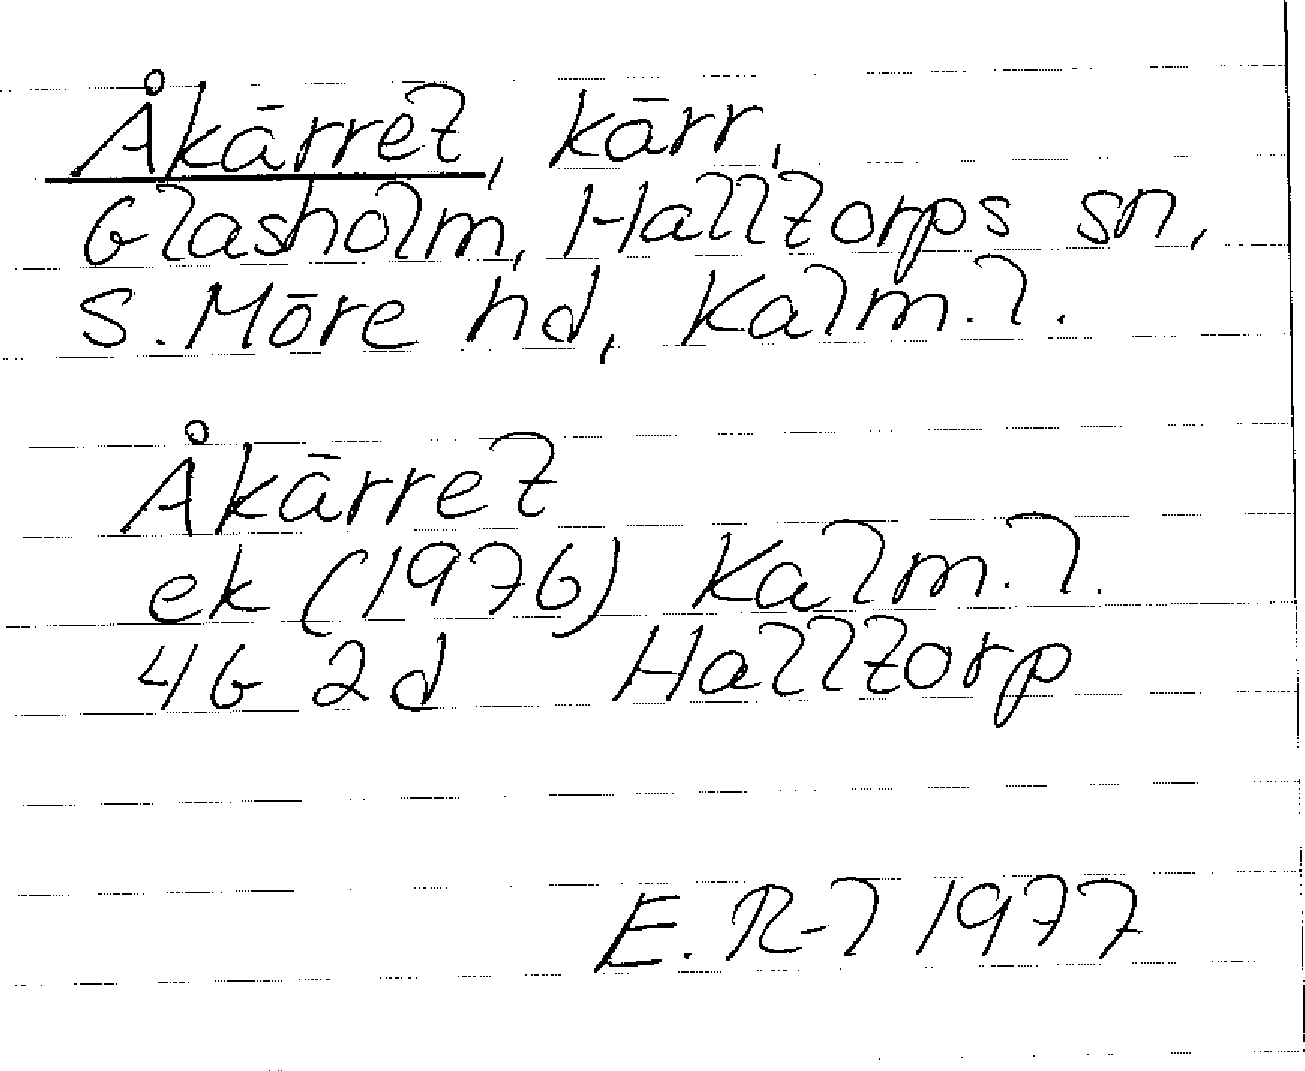 Åkärret, kärr,
Glasholm, Halltorps sn,
S. Möre hd, Kalm. l.
Åkärret
ek (1976) Kalm. l.
4G 2d Halltorp
E. R-l 1977